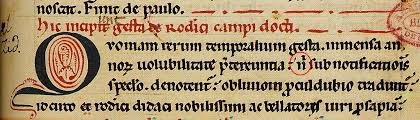 noscat. Finit de paulo.
Hic incipit gesta de Rodici campi docti.
Quoniam rerum temporalium gesta inmensa an
nor uolubilitate pretereuntia: ni sub notificationis
speculo denotentur: obliuioni proculdubio traduntur.
Idcirco et rodici didaci nobilissimi ac bellatoris uiri prosapia